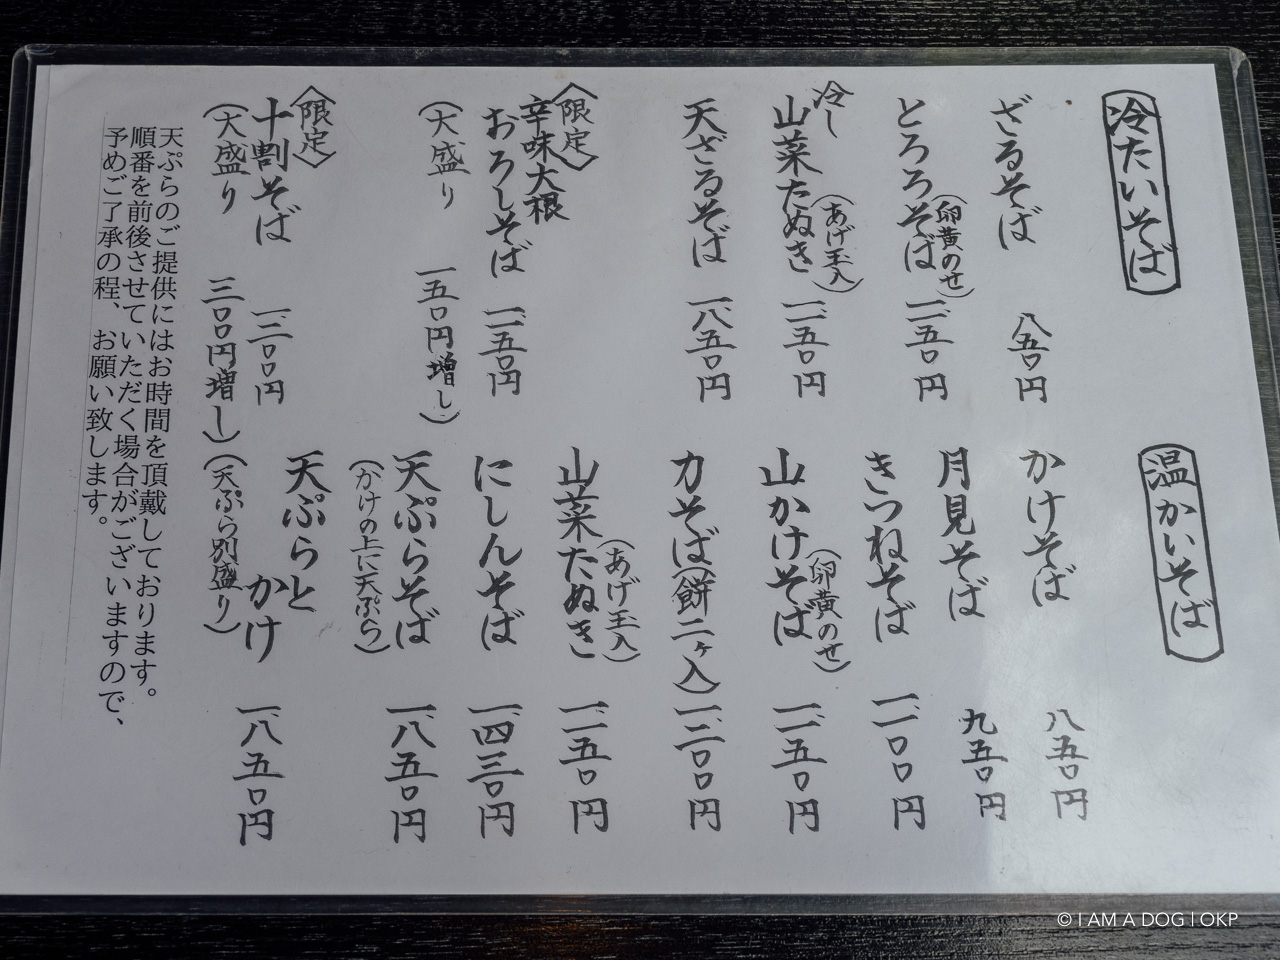 冷たいそば
ざるそば 八五〇円
とろろそば（卵黄のせ） 一、一五〇円
冷し山菜たぬき（あげ玉入） 一、一五〇円
天ざるそば 一、八五〇円
〈限定〉
辛味大根
おろしそば 一、一五〇円
（大盛り 一五〇円増し）
〈限定〉
十割そば 一、二〇〇円
（大盛り 三〇〇円増し）
温かいそば
かけそば 八五〇円
月見そば 九五〇円
きつねそば 一、一〇〇円
山かけそば（卵黄のせ） 一、一五〇円
力そば（餅二ヶ入） 一、二〇〇円
山菜たぬき（あげ玉入） 一、一五〇円
にしんそば 一、四三〇円
天ぷらそば 一、八五〇円
（かけの上に天ぷら）
天ぷらと
かけ 一、八五〇円
（天ぷら別盛り）
天ぷらのご提供にはお時間を頂戴しております。
順番を前後させていただく場合がございますので、
予めご了承の程、お願い致します。
© I AM A DOG | OKP